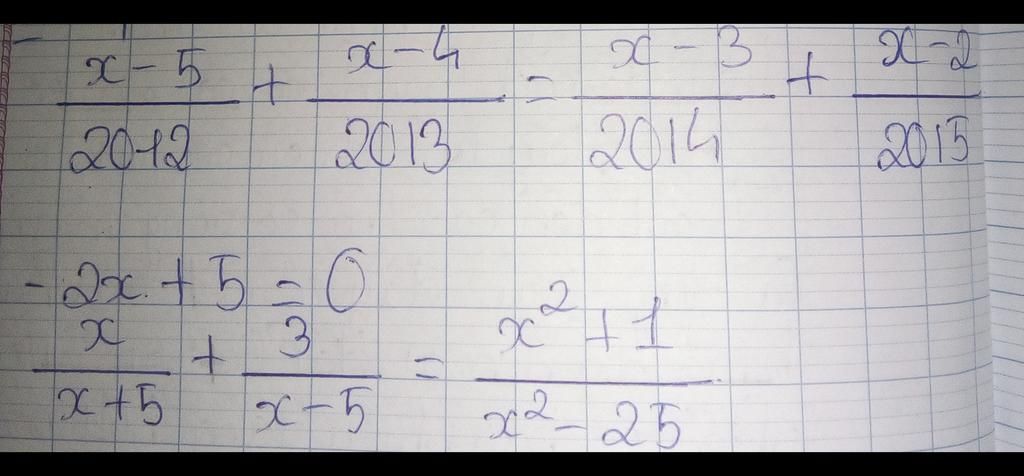 x - 5 / 2012 + x - 4 / 2013 = x - 3 / 2014 + x - 2 / 2015
- 2x + 5 = 0
x / x + 5 + 3 / x - 5 = x² + 1 / x² - 25